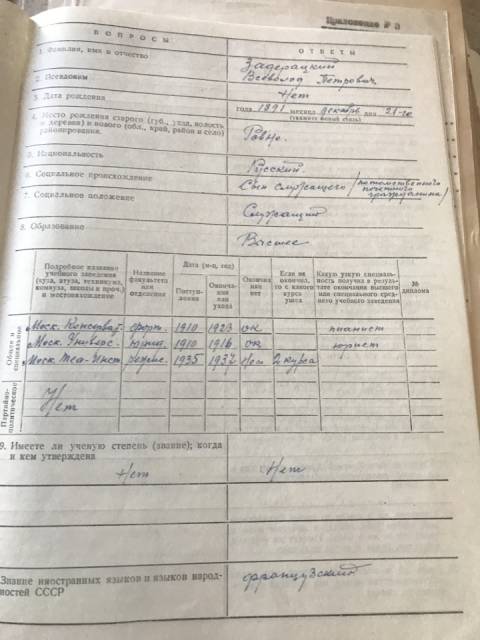 Приложение № 3
ВОПРОСЫ
ОТВЕТЫ
1. Фамилия, имя и отчество
Задерацкий
Всеволод Петрович
2. Псевдоним
Нет
3. Дата рождения
года 1891 месяц декабрь дня 21-го
(укажите новый стиль)
4. Место рождения старого (губ., уезд, волость
и деревня) и нового (обл., край, район и село)
районирования.
Ровно.
5. Национальность
Русский.
6. Социальное происхождение
Сын служащего /потомственного
почетного
гражданина/
7. Социальное положение
Служащий
8. Образование
Высшее
Подробное название
учебного заведения
(вуза, втуза, техникума,
комвуза, школы и проч.)
и местонахождение
Название
факультета
или
отделения
Дата (м-ц, год)
Поступ-
ления
Оконча-
ния
или
ухода
Окончил
или
нет
Если не
окончил,
то с какого
курса
ушел
Какую узкую специаль-
ность получил в резуль-
тате окончания высшего
или специального сред-
него учебного заведения
№
диплома
Общее и
специальное
Моск. Консерват. форт. 1910 1923 ок пианист
Моск. Универс. Юрид. 1910 1916 ок юрист
Моск. Теа-Инст. Режис. 1935 1937 Нет 2 курса
Партийно-
политическое
Нет
9. Имеете ли ученую степень (звание); когда
и кем утверждена
Нет
Нет
Знание иностранных языков и языков народ-
ностей СССР
французский